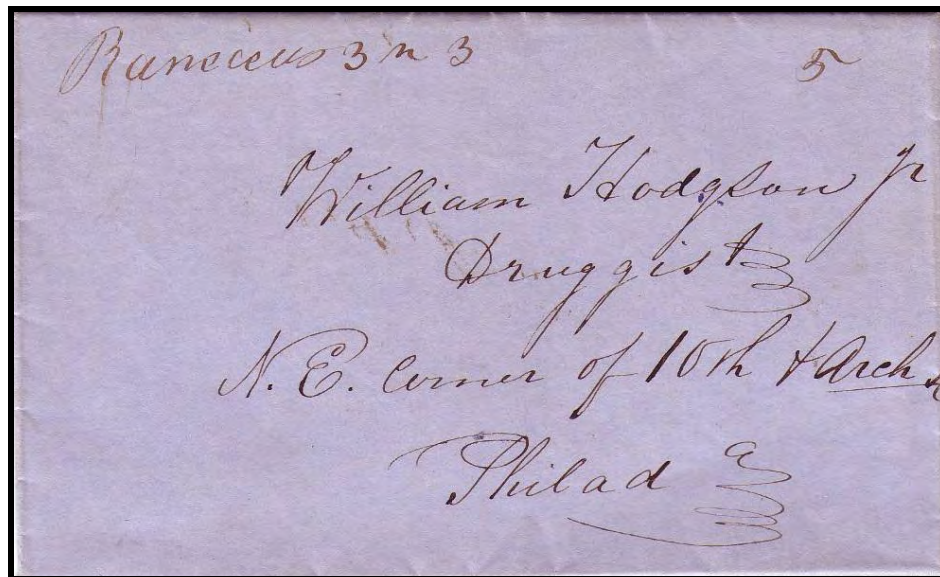 Rancocus 3 m 3 5
William Hodgson Jr
Druggist
N. E. corner of 10th & Arch
Philad a